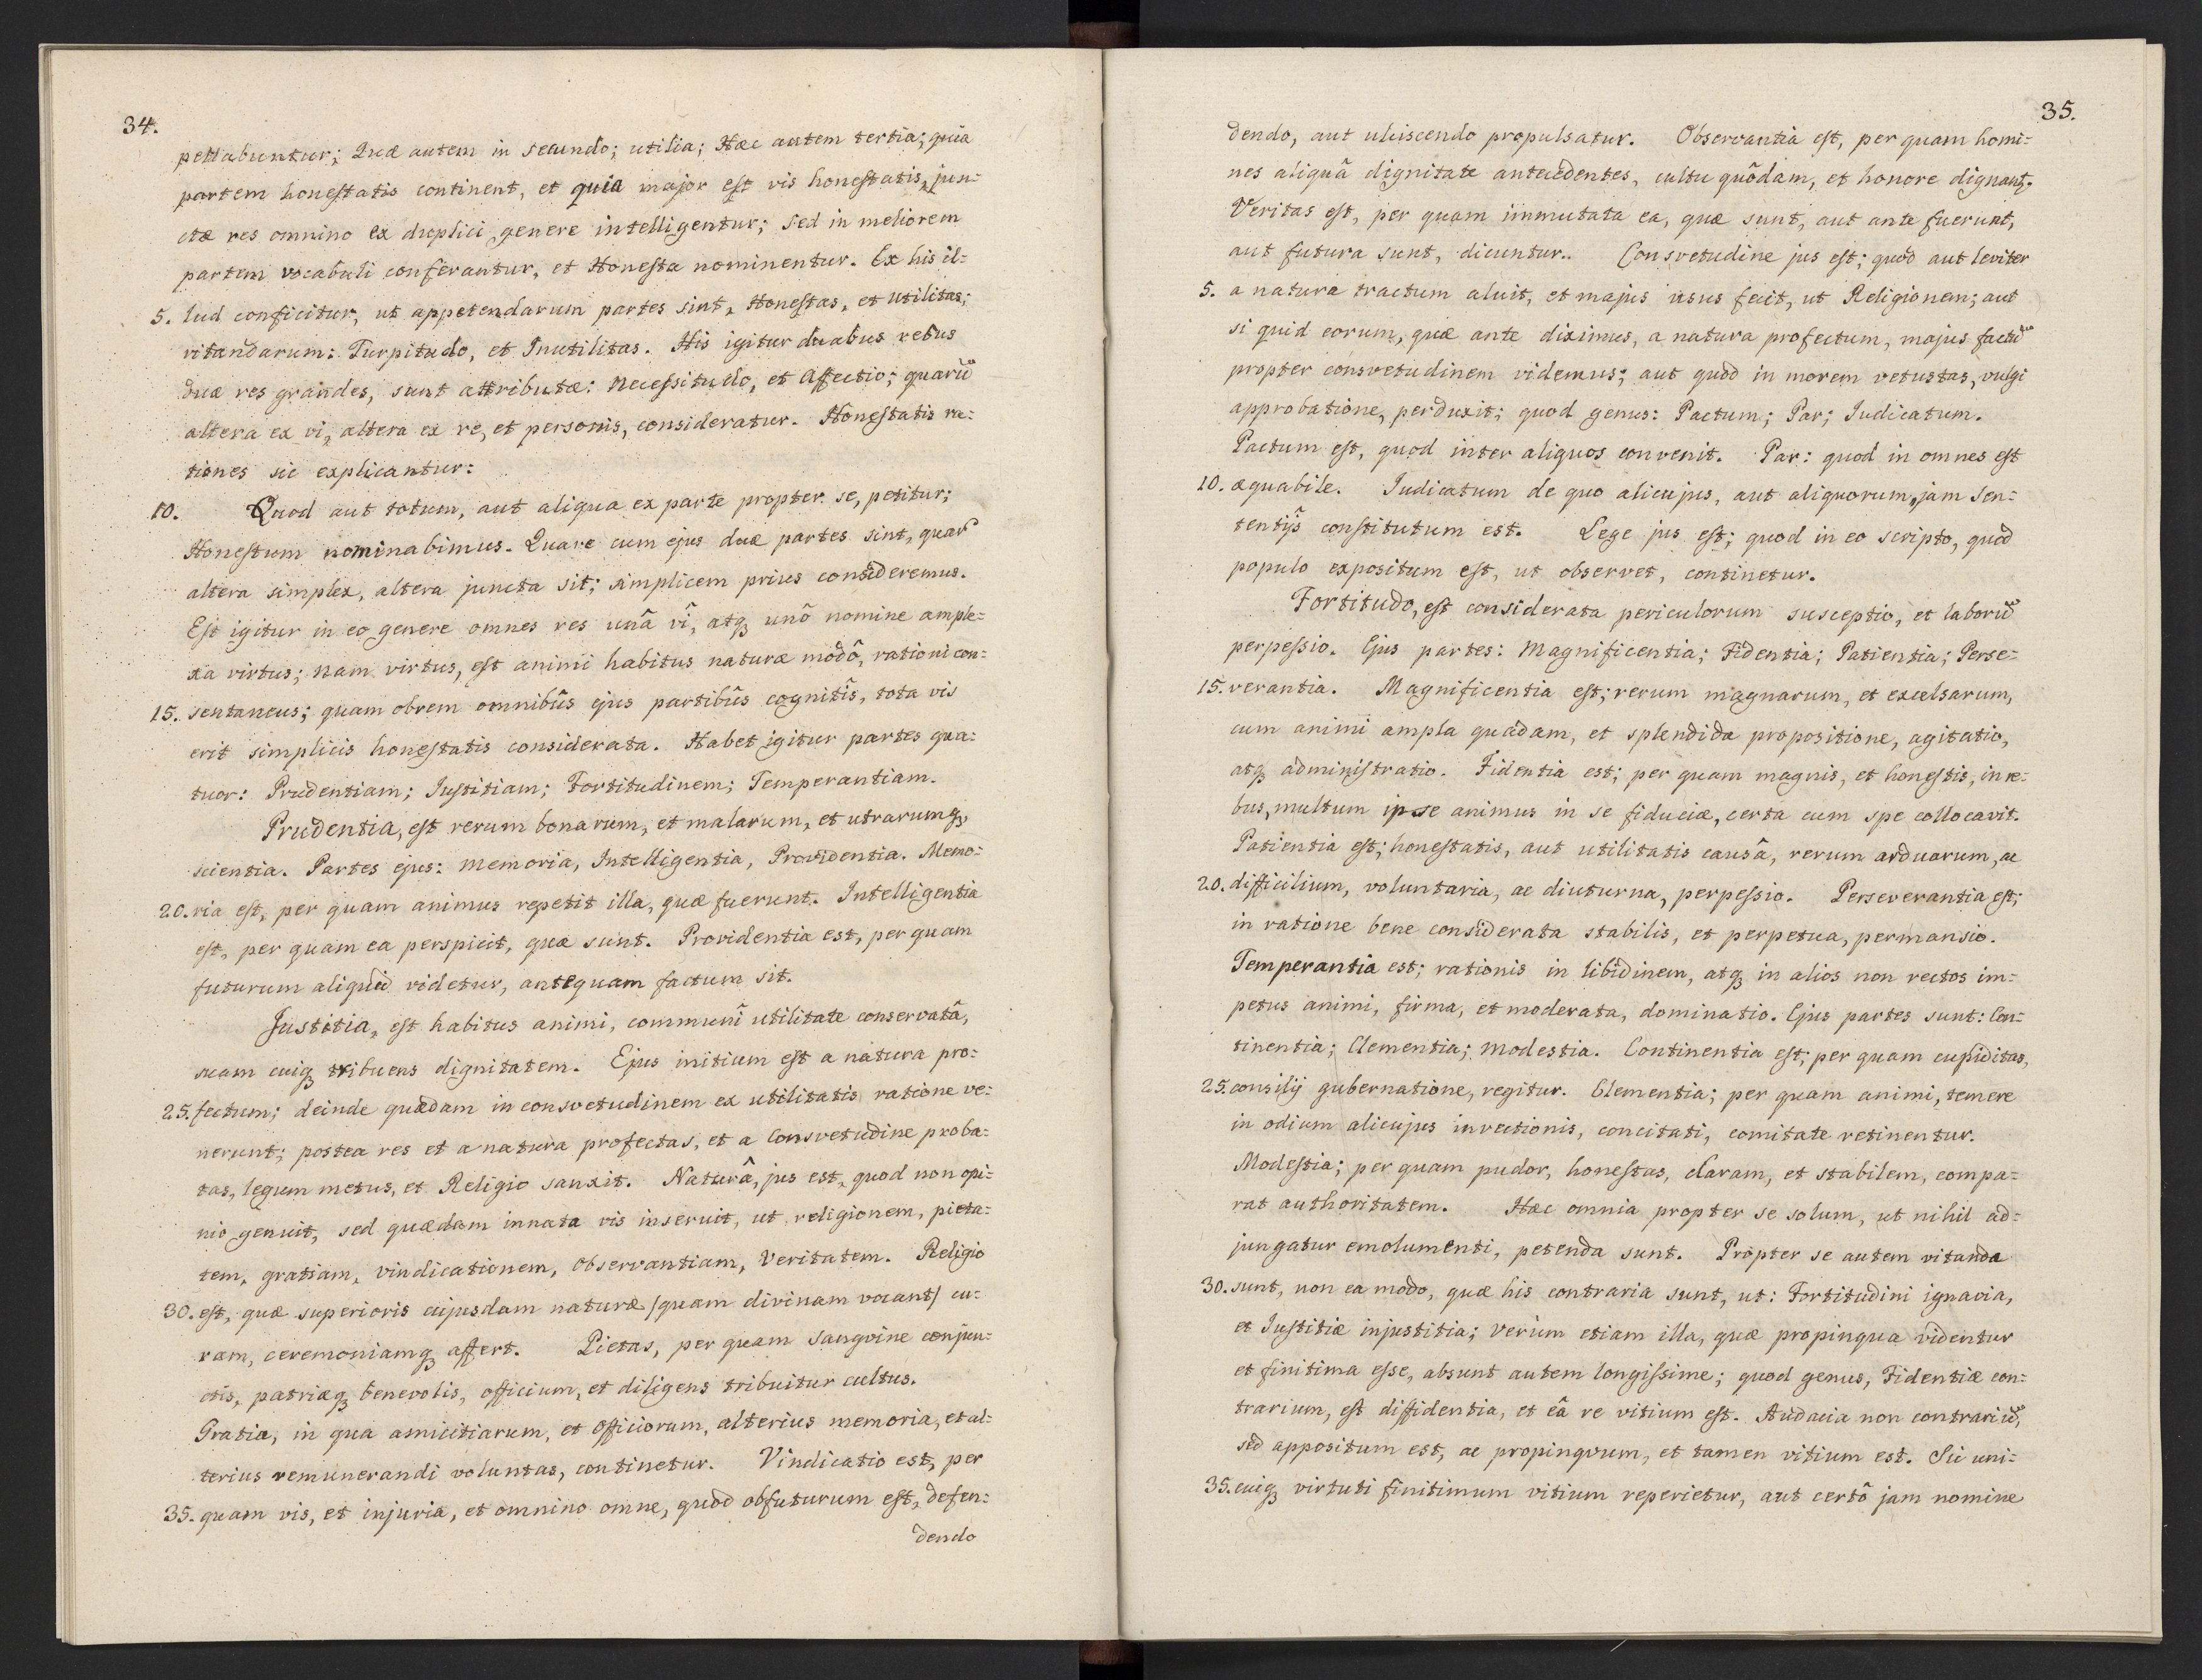 34.
pellabuntur; Quæ autem in secundo; utilia; Hæc autem tertia; quia
partem honestatis continent, et quia major est vis honestatis, jun=
ctæ res omnino ex duplici genere intelligentur; Sed in meliorem
partem vocabuli conferantur, et Honesta nominentur. Ex his il=
5. lud conficitur, ut appetendarum partes sint, Honestas, et utilitas;
vitandarum: Turpitudo, et Inutilitas. His igitur duabus rebus
duæ res grandes, sunt attributæ: Necessitudo, et Affectio; quarū
altera ex vi, altera ex re, et personis, consideratur. Honestatis ra=
tiones sic explicantur:
10. Quod aut totum, aut aliqua ex parte propter se, petitur;
Honestum nominabimus. Quare cum ejus duæ partes sint, quar̄
altera simplex, altera juncta sit; simplicem prius consideremus.
Est igitur in eo genere omnes res unâ vî, atq; unô nomine ample=
xa virtus; Nam virtus, est animi habitus naturæ modô, rationi con=
15. sentaneus; quam obrem omnibûs ejus partibûs cognitîs, tota vis
erit simplicis honestatis considerata. Habet igitur partes qua=
tuor: Prudentiam; Justitiam; Fortitudinem; Temperantiam.
Prudentia, est rerum bonarum, et malarum, et utrarumq;
scientia. Partes ejus: Memoria, Intelligentia, Providentia. Memo=
20. ria est, per quam animus repetit illa, quæ fuerunt. Intelligentia
est, per quam ea perspicit, quæ sunt. Providentia est, per quam
futurum aliquid videtur, antequam factum sit.
Justitia, est habitus animi, communî utilitate conservatâ,
suam cuiq; tribuens dignitatem. Ejus initium est a natura pro=
25. fectum; deinde quædam in consvetudinem ex utilitatis ratione ve=
nerunt; postea res et a natura profectas, et a Consvetudine proba=
tas, legum metus, et Religio sanxit. Naturâ, jus est, quod non opi=
nio genuit, sed quædam innata vis inseruit, ut religionem, pieta=
tem, gratiam, vindicationem, Observantiam, Veritatem. Religio
30. est, quæ superioris cujusdam naturæ /quam divinam vocant/ cu=
ram, ceremoniamq; affert. Pietas, per quam Sangvine conjun=
ctis, patriæq; benevolis, officium, et diligens tribuitur cultus.
Gratia, in qua amicitiarum, et Officiorum, alterius memoria, et al=
terius remunerandi voluntas, continetur. Vindicatio est, per
35. quam vis, et injuria, et omnino omne, quod obfuturum est, defen=
dendo
35.
dendo, aut ulciscendo propulsatur. Observantia est, per quam homi=
nes aliquâ dignitate antecedentes, cultu quôdam, et honore dignant;.
Veritas est, per quam immutata ea, quæ sunt, aut ante fuerunt,
aut futura sunt, dicuntur.. Consvetudine jus est; quod aut leviter
5. a natura tractum aluit, et majus usus fecit, ut Religionem; aut
si quid eorum, quæ ante diximus, a natura profectum, majus factū
propter consvetudinem videmus; aut quod in morem vetustas, vulgi
approbatione, perduxit; quod genus: Pactum; Par; Iudicatum.
Pactum est, quod inter aliquos convenit. Par: quod in omnes est
10. æquabile. Iudicatum de quo alicujus, aut aliquorum, jam Sen=
tentijs constitutum est. Lege jus est; quod in eo scripto, quod
populo expositum est, ut observet, continetur.
Fortitudo, est considerata periculorum susceptio, et laborū
perpessio. Ejus partes: Magnificentia; Fidentia; Patientia; Perse=
15. verantia. Magnificentia est; rerum magnarum, et excelsarum,
cum animi ampla quadam, et splendida propositione, agitatio,
atq; administratio. Fidentia est; per quam magnis, et honestis, in re=
bus, multum ipse animus in se fiduciæ, certa cum spe collocavit.
Patientia est; honestatis, aut utilitatis causâ, rerum arduarum, ac
20. difficilium, voluntaria, ac diuturna, perpessio. Perseverantia est;
in ratione bene considerata stabilis, et perpetua, permansio.
Temperantia est; rationis in libidinem, atq; in alios non rectos im=
petus animi, firma, et moderata, dominatio. Ejus partes sunt: Con=
tinentia; Clementia; Modestia. Continentia est; per quam cupiditas,
25. consilij gubernatione, regitur. Clementia; per quam animi, temere
in odium alicujus invectionis, concitati, comitate retinentur.
Modestia; per quam pudor, honestas, claram, et stabilem, compa=
rat authoritatem. Hæc omnia propter se solum, ut nihil ad=
jungatur emolumenti, petenda sunt. Propter se autem vitanda
30. sunt, non ea modo, quæ his contraria sunt, ut: Fortitudini ignavia,
et Iustitiæ injustitia; Verum etiam illa, quæ propinqua videntur
et finitima esse, absunt autem longissime; quod genus, Fidentiæ con=
trarium, est diffidentia, et eâ re vitium est. Audacia non contrariū,
sed appositum est, ac propinqvum, et tamen vitium est. Sic uni=
35. cuiq; virtuti finitimum vitium reperietur, aut certô jam nomine